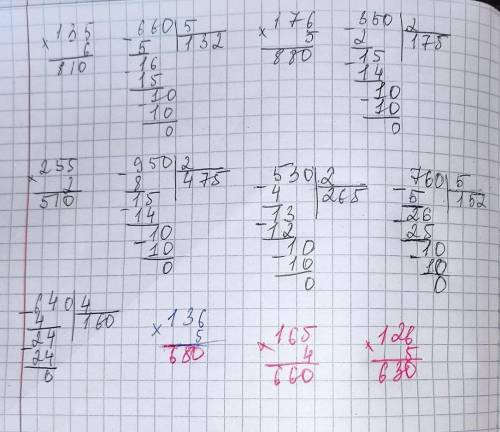 135
× 6
810
- 660 5
5 132
- 16
15
- 10
10
0
× 176
5
880
- 350 2
2 175
- 15
14
- 10
- 10
0
× 255
2
510
- 950 2
8 475
- 15
14
- 10
10
0
- 530 2
4 265
- 13
12
- 10
10
0
- 760 5
5 152
- 26
25
- 10
10
0
- 640 4
4 160
- 24
24
0
× 136
5
680
× 165
4
660
× 126
5
630